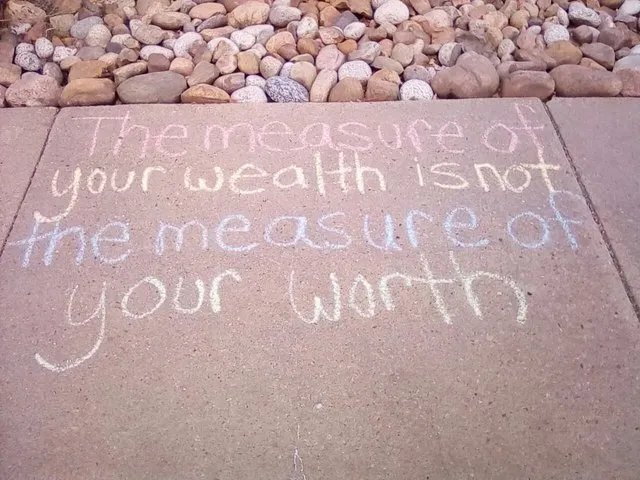 The measure of
your wealth is not
the measure of
your worth